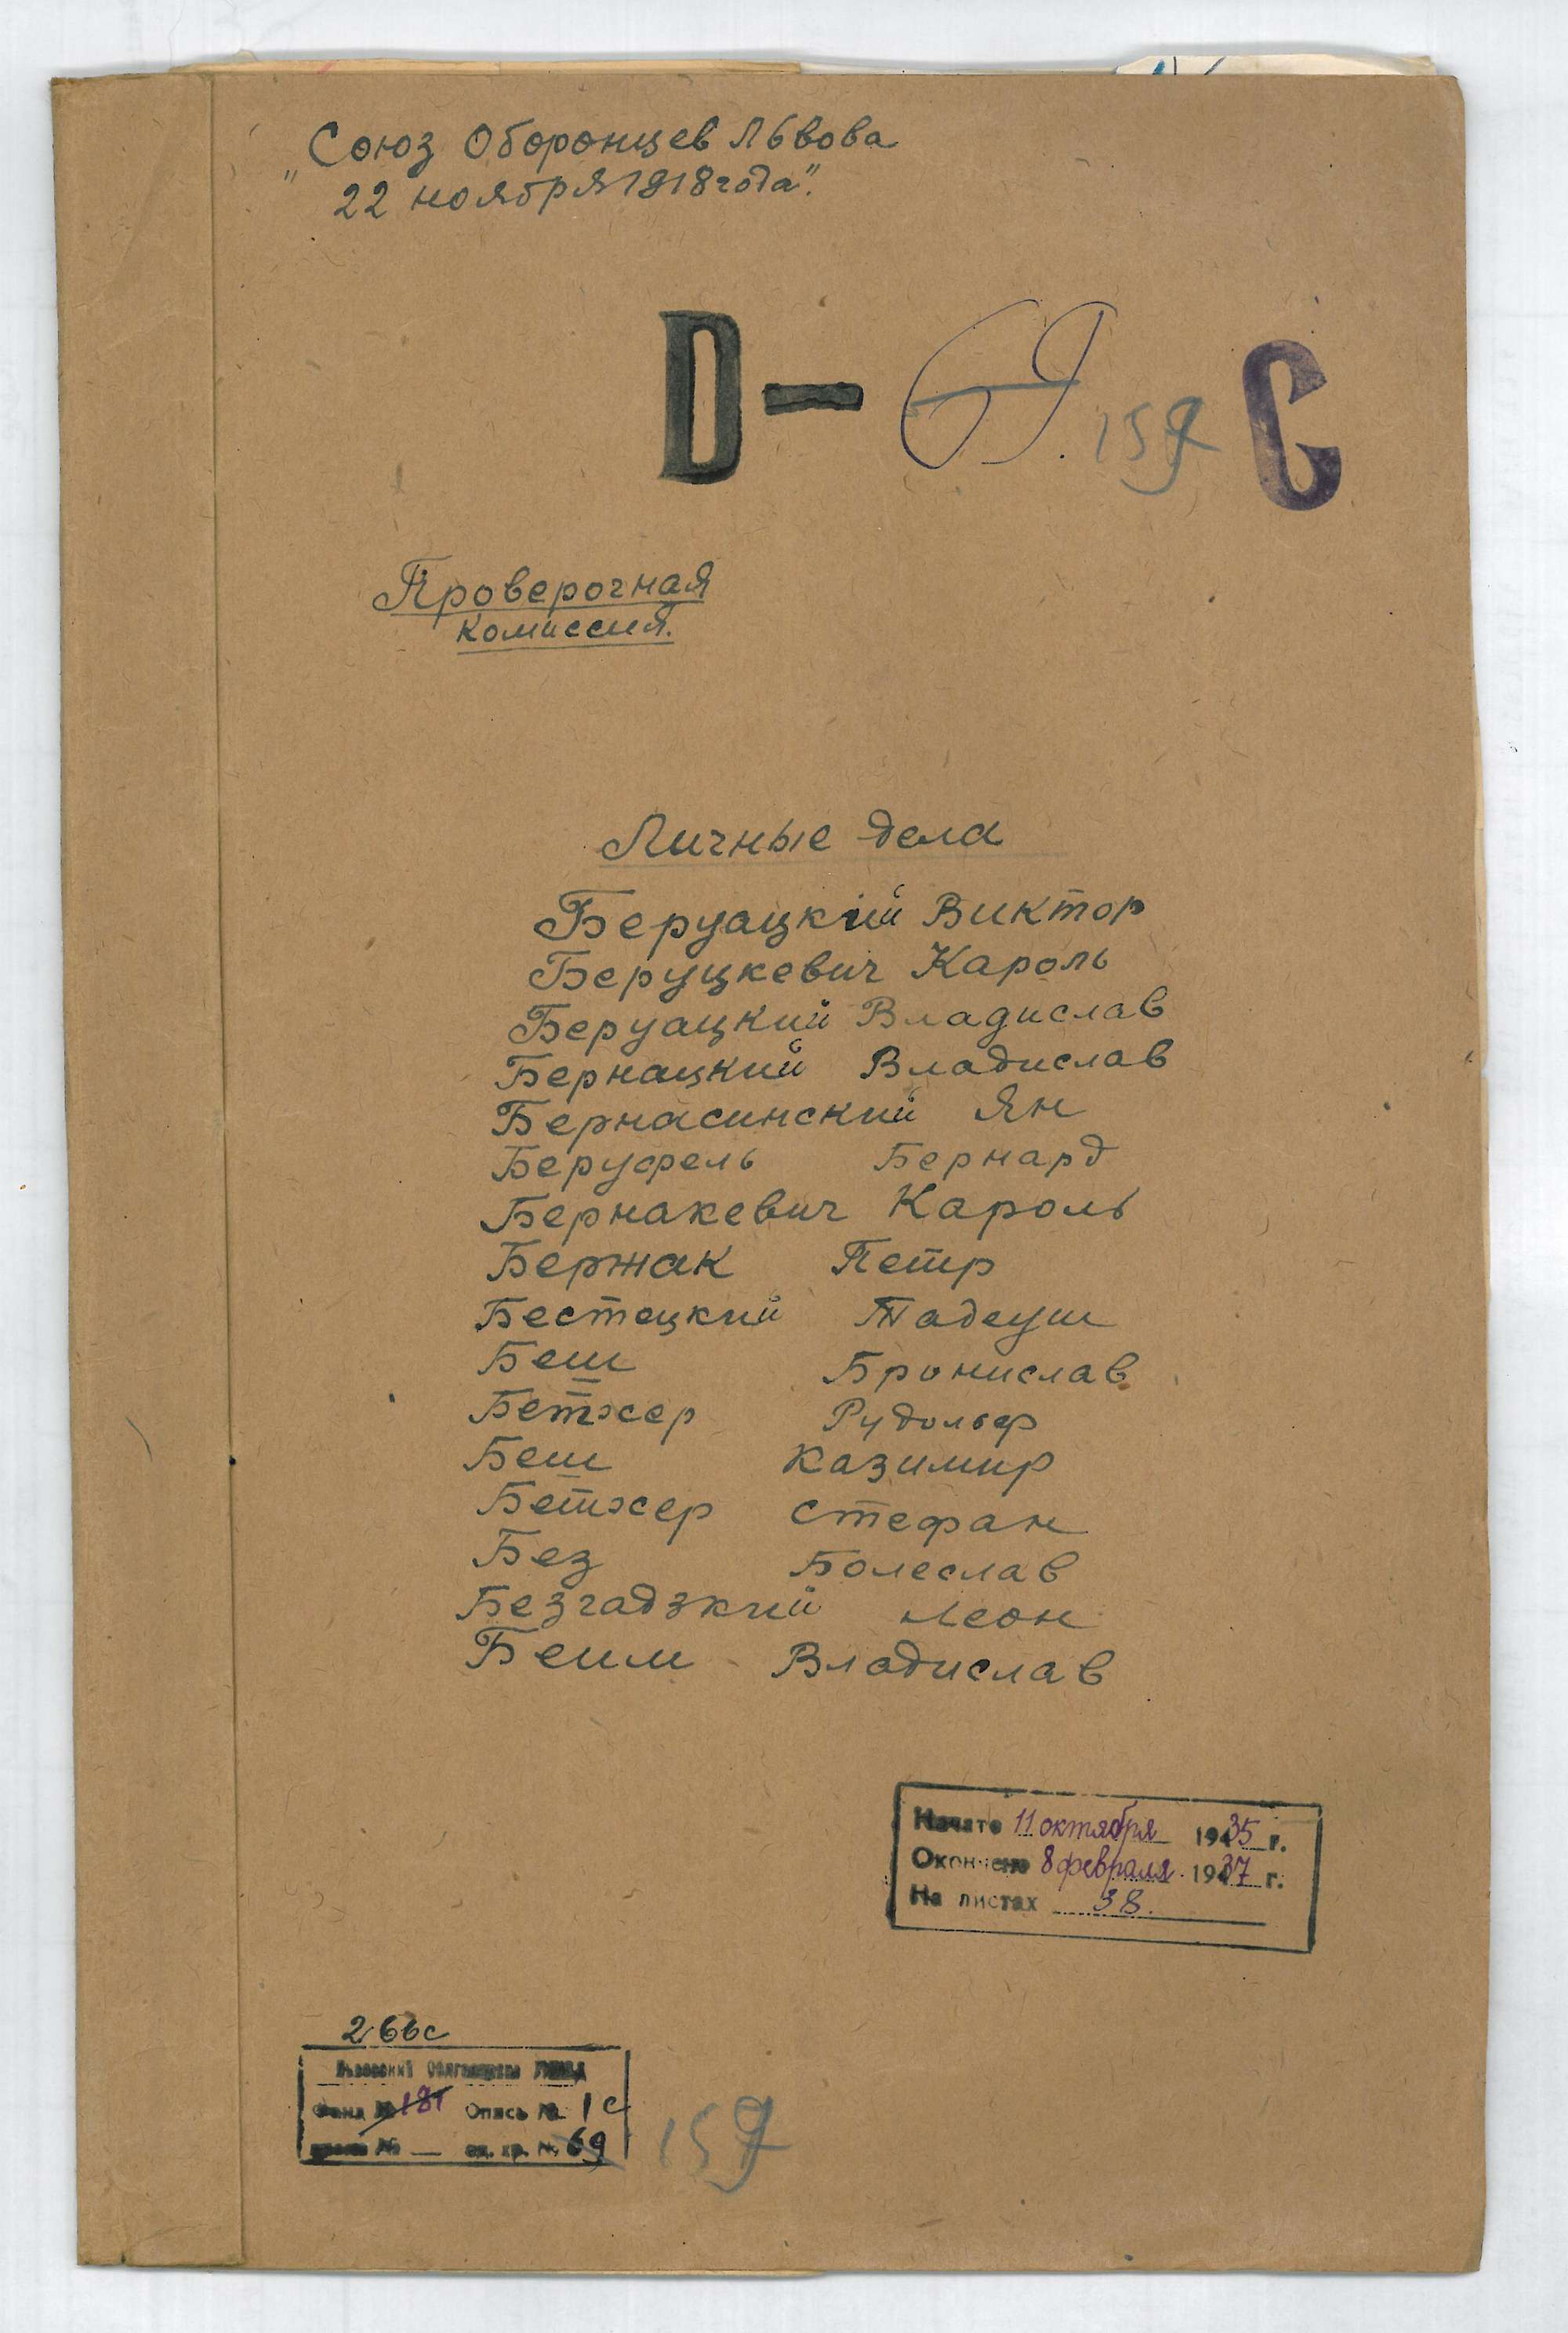 Союз Оборонцев Львова
"22 ноября 1918 года".
D- 69. 157 С
Проверочная
комиссия.
Личные дела
Беруацкий Виктор
Беруцкевич Кароль
Беруацкий Владислав
Бернацкий Владислав
Бернасинский Ян
Беруфель Бернард
Бернакевич Кароль
Бержак Петр
Бестецкий Тадеуш
Беш Бронислав
Бетхер Рудольф
Беш Казимир
Бетхер Стефан
Без Болеслав
Безгадзкий Леон
Беим Владислав
Начато 11 октября 1935 г.
Окончено 8 февраля 1937 г.
На листах 38.
266с
Фонд № 181 Опись № 1с
№ — ед. хр. № 69
157